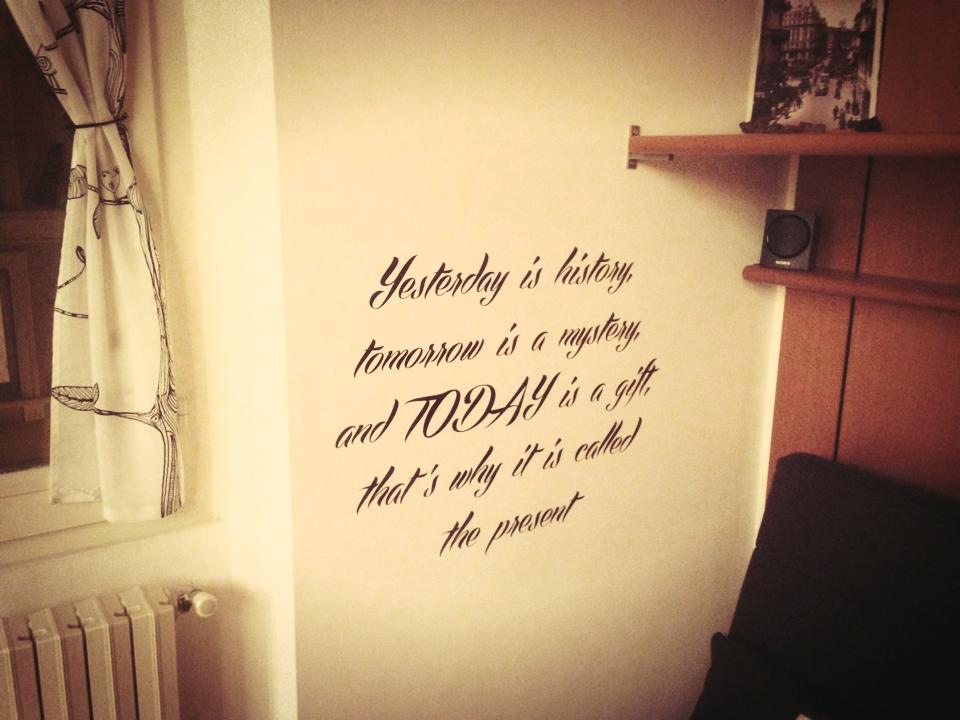 Yesterday is history,
tomorrow is a mystery,
and TODAY is a gift,
that's why it is called
the present